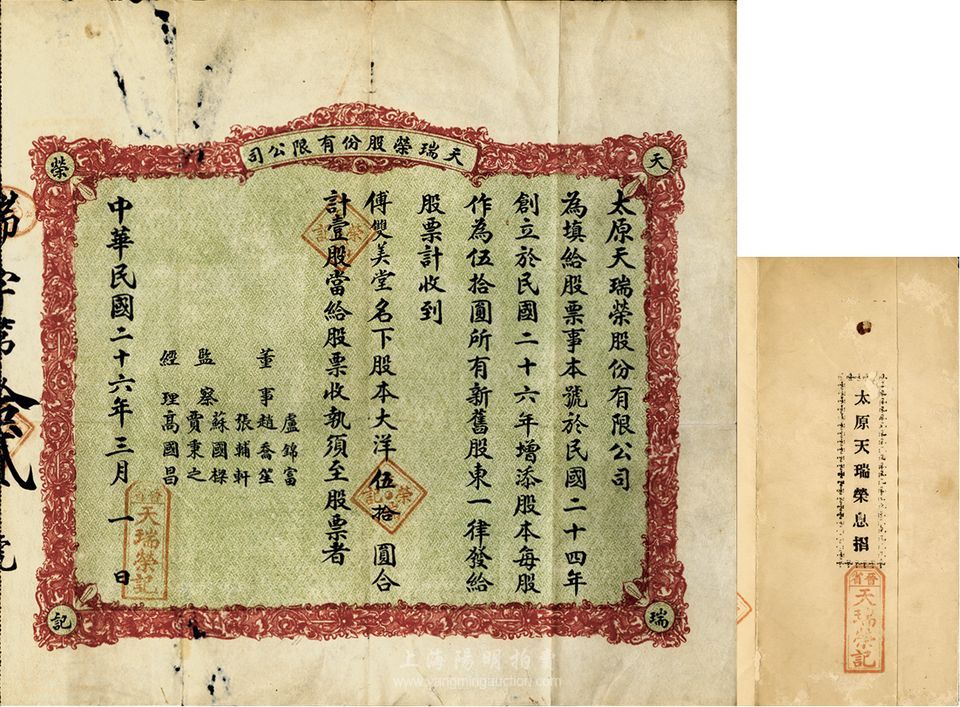 天瑞榮股份有限公司
天
瑞
榮
記
太原天瑞榮股份有限公司
為填給股票事本號於民國二十四年
創立於民國二十六年增添股本每股
作為伍拾圓所有新舊股東一律發給
股票計收到
傅雙美堂名下股本大洋伍拾圓合
計壹股當給股票收執須至股票者
董事
盧錦富
趙喬笙
張輔軒
監察
蘇國樑
賈秉之
經理高國昌
中華民國二十六年三月一日
晉省
天瑞榮記
瑞字第拾貳號
太原天瑞榮息摺
晉省
天瑞榮記
上海陽明拍賣
www.yangmingauction.com